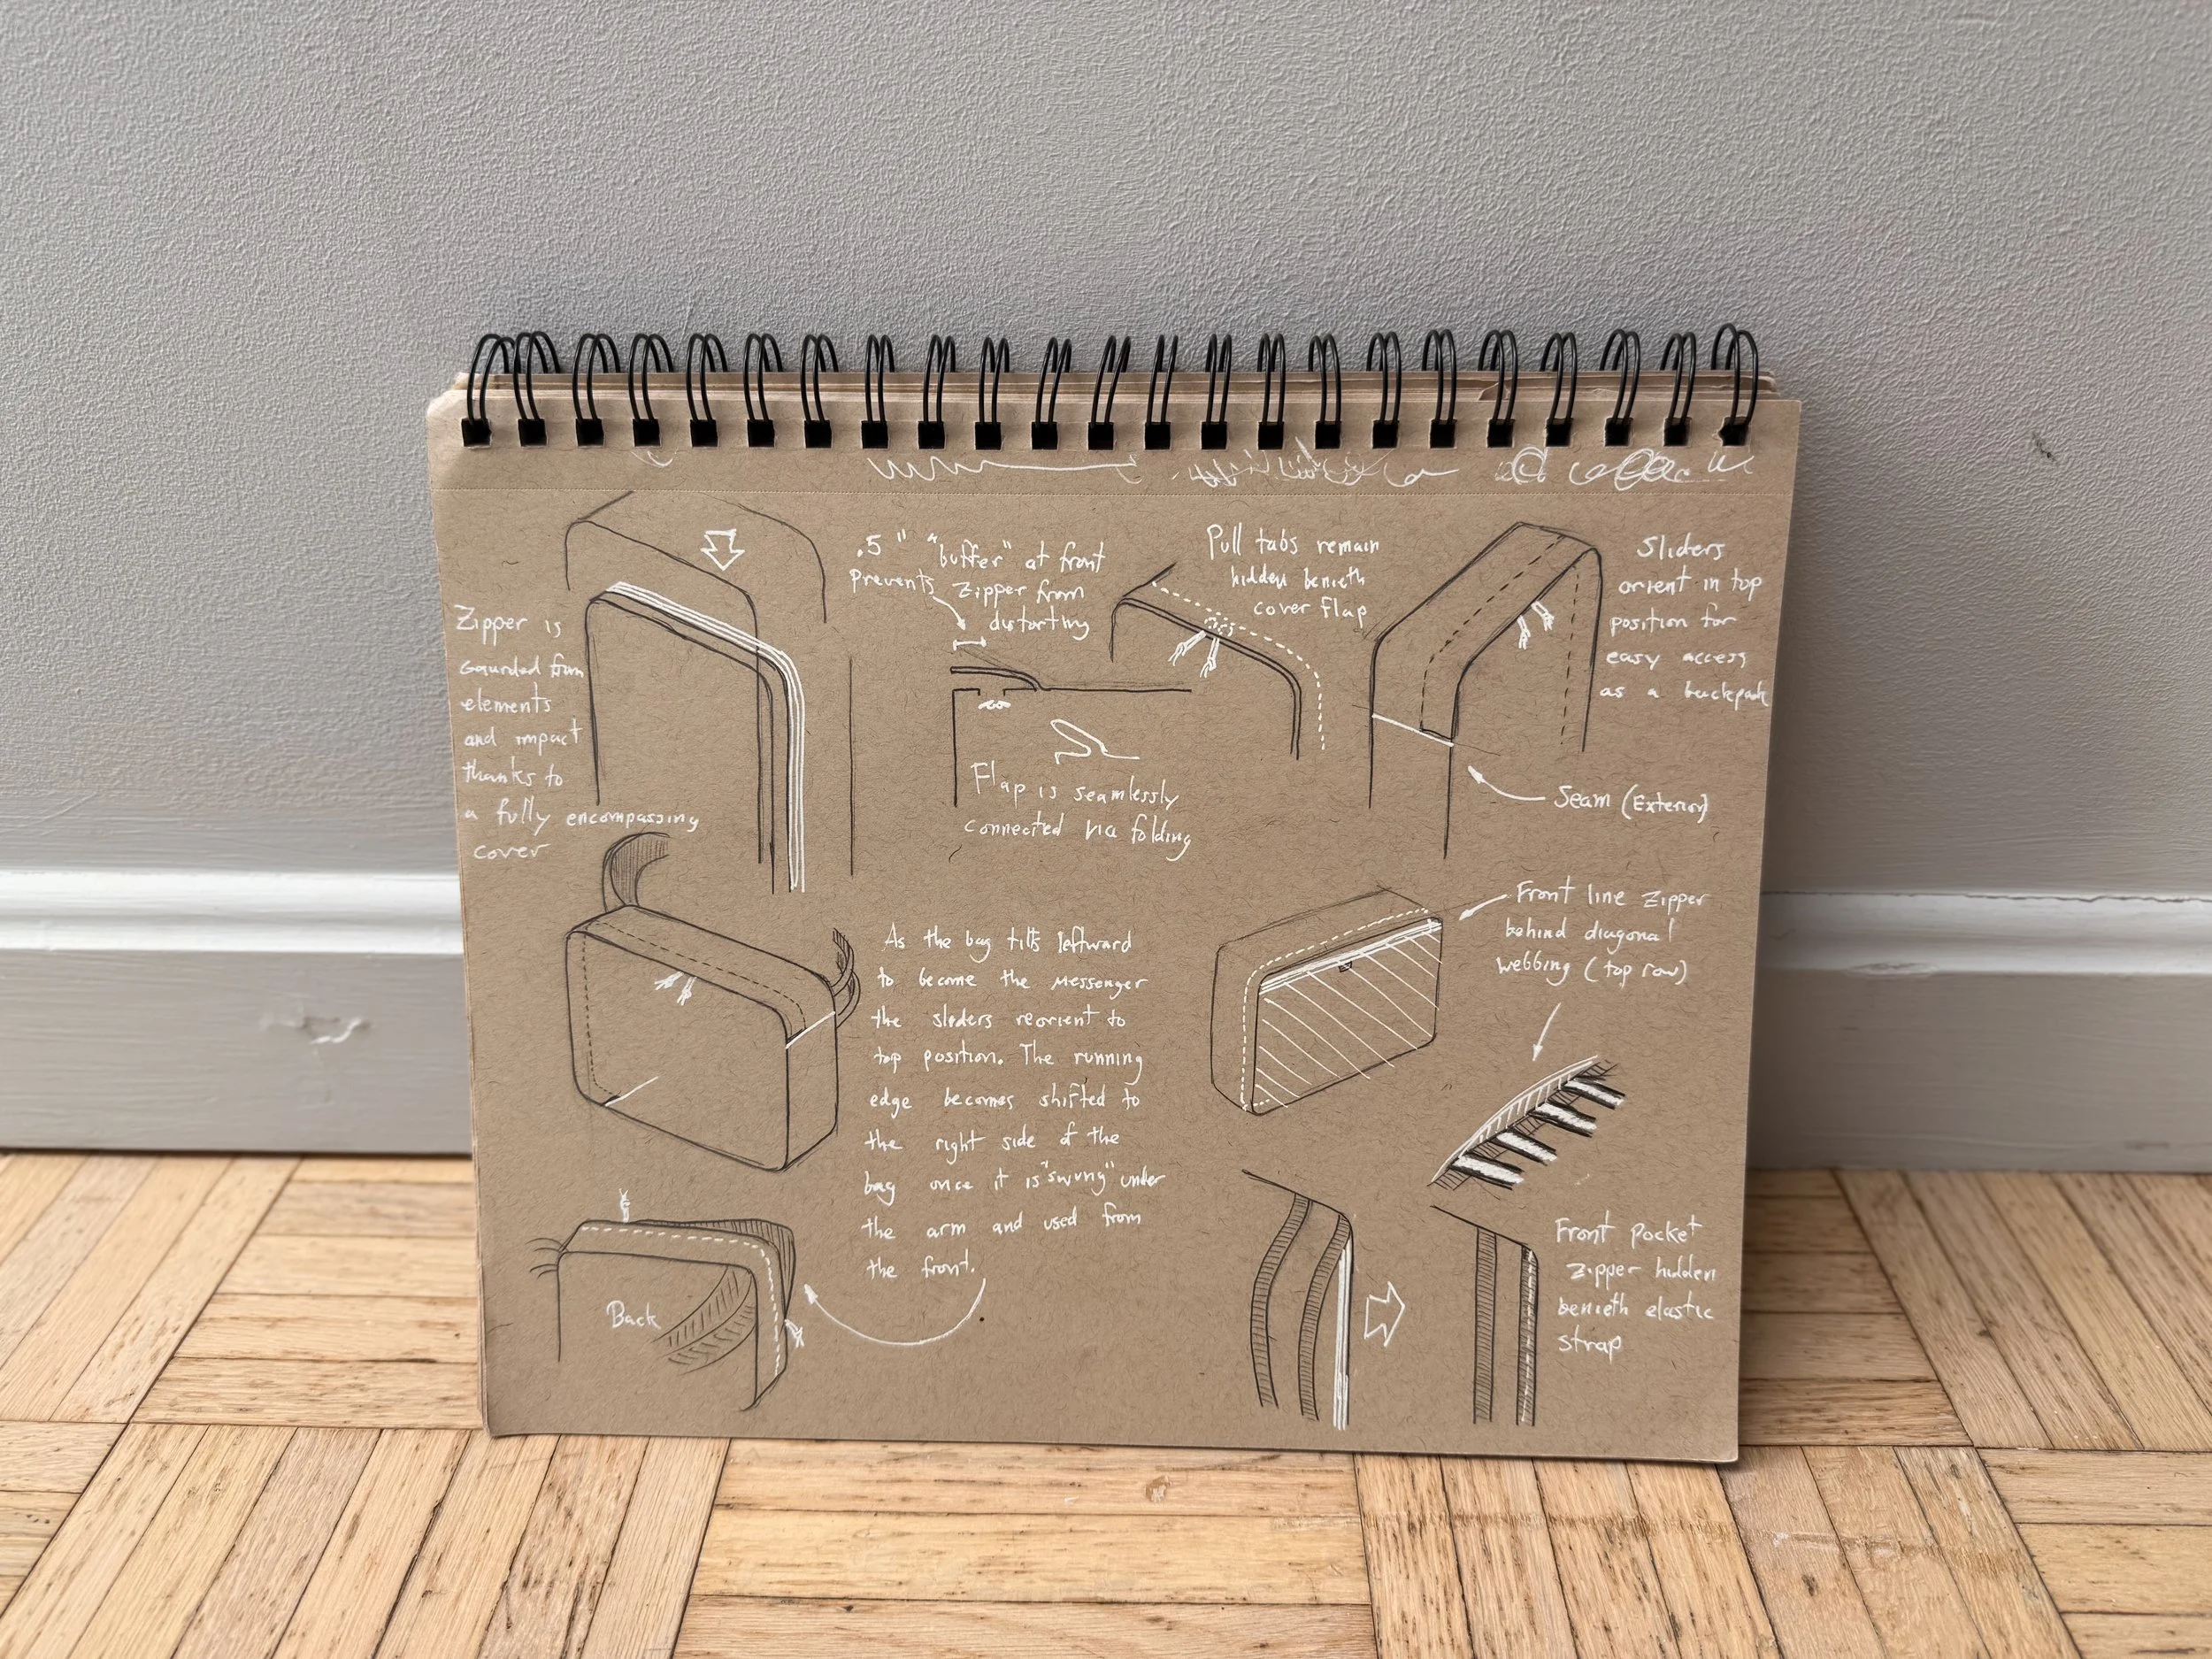 Zipper is
Gaurded from
elements
and impact
thanks to
a fully encompassing
cover
.5" "buffer" at front
prevents zipper from
distorting
Flap is seamlessly
connected via folding
Pull tabs remain
hidden benieth
cover flap
Sliders
orient in top
position for
easy access
as a backpack
Seam (Exterior)
As the bag tilts leftward
to become the messenger
the sliders reorient to
top position. The running
edge becomes shifted to
the right side of the
bag once it is "swung" under
the arm and used from
the front.
Back
Front line zipper
behind diagonal
webbing (top row)
Front pocket
zipper hidden
benieth elastic
strap